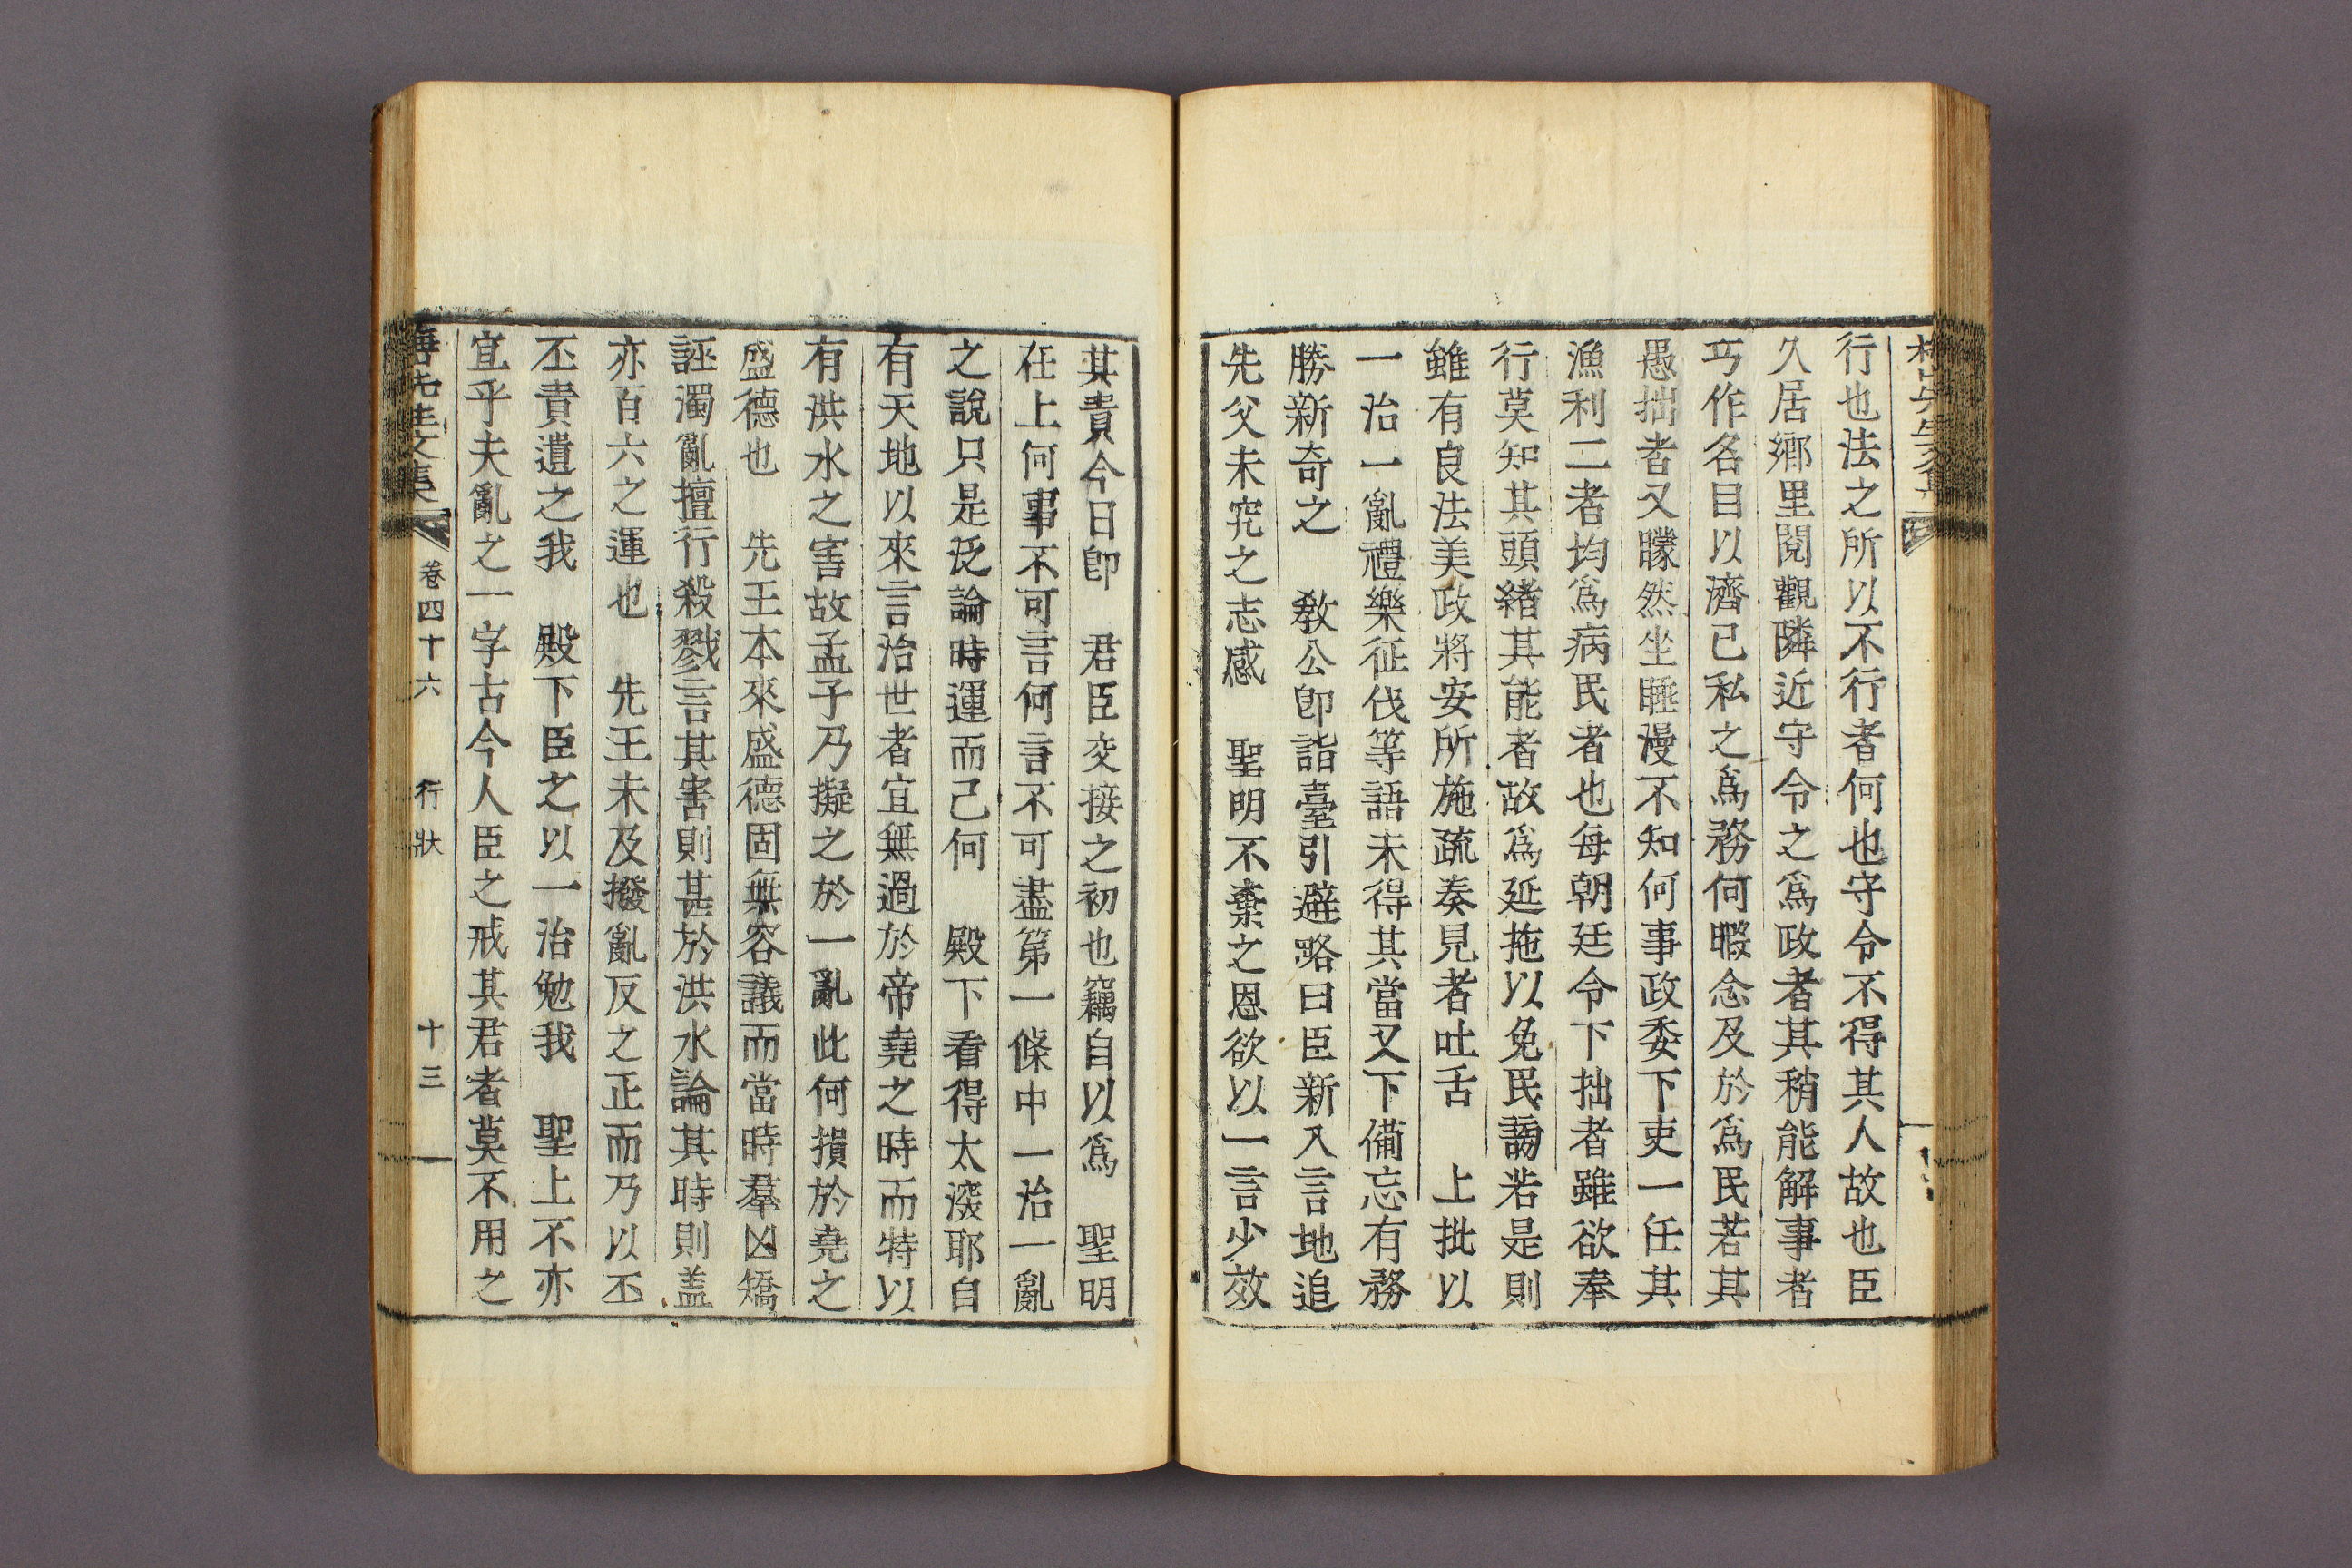 行也法之所以不行者何也守令不得其人故也臣
久居鄉里閱觀隣近守令之爲政者其稍能解事者
巧作各目以濟已私之爲務何暇念及於爲民若其
愚拙者又矇然坐睡漫不知何事政委下吏一任其
漁利二者均爲病民者也每朝廷令下拙者雖欲奉
行莫知其頭緖其能者故爲延拖以免民謗若是則
雖有良法美政將安所施疏奏見者吐舌　上批以
一治一亂禮樂征伐等語未得其當又下備忘有務
勝新奇之　敎公卽詣臺引避略曰臣新入言地追
先父未究之志感　聖明不棄之恩欲以一言少效
其責今日卽　君臣交接之初也竊自以爲　聖明
在上何事不可言何言不可盡第一條中一治一亂
之說只是泛論時運而已何　殿下看得太深耶自
有天地以來言治世者宜無過於帝堯之時而特以
有洪水之害故孟子乃擬之於一亂此何損於堯之
盛德也　先王本來盛德固無容議而當時羣凶矯
誣濁亂擅行殺戮言其害則甚於洪水論其時則盖
亦百六之運也　先王未及撥亂反之正而乃以丕
丕責遺之我　殿下臣之以一治勉我　聖上不亦
宜乎夫亂之一字古今人臣之戒其君者莫不用之
先生文集　卷四十六　行狀　十三